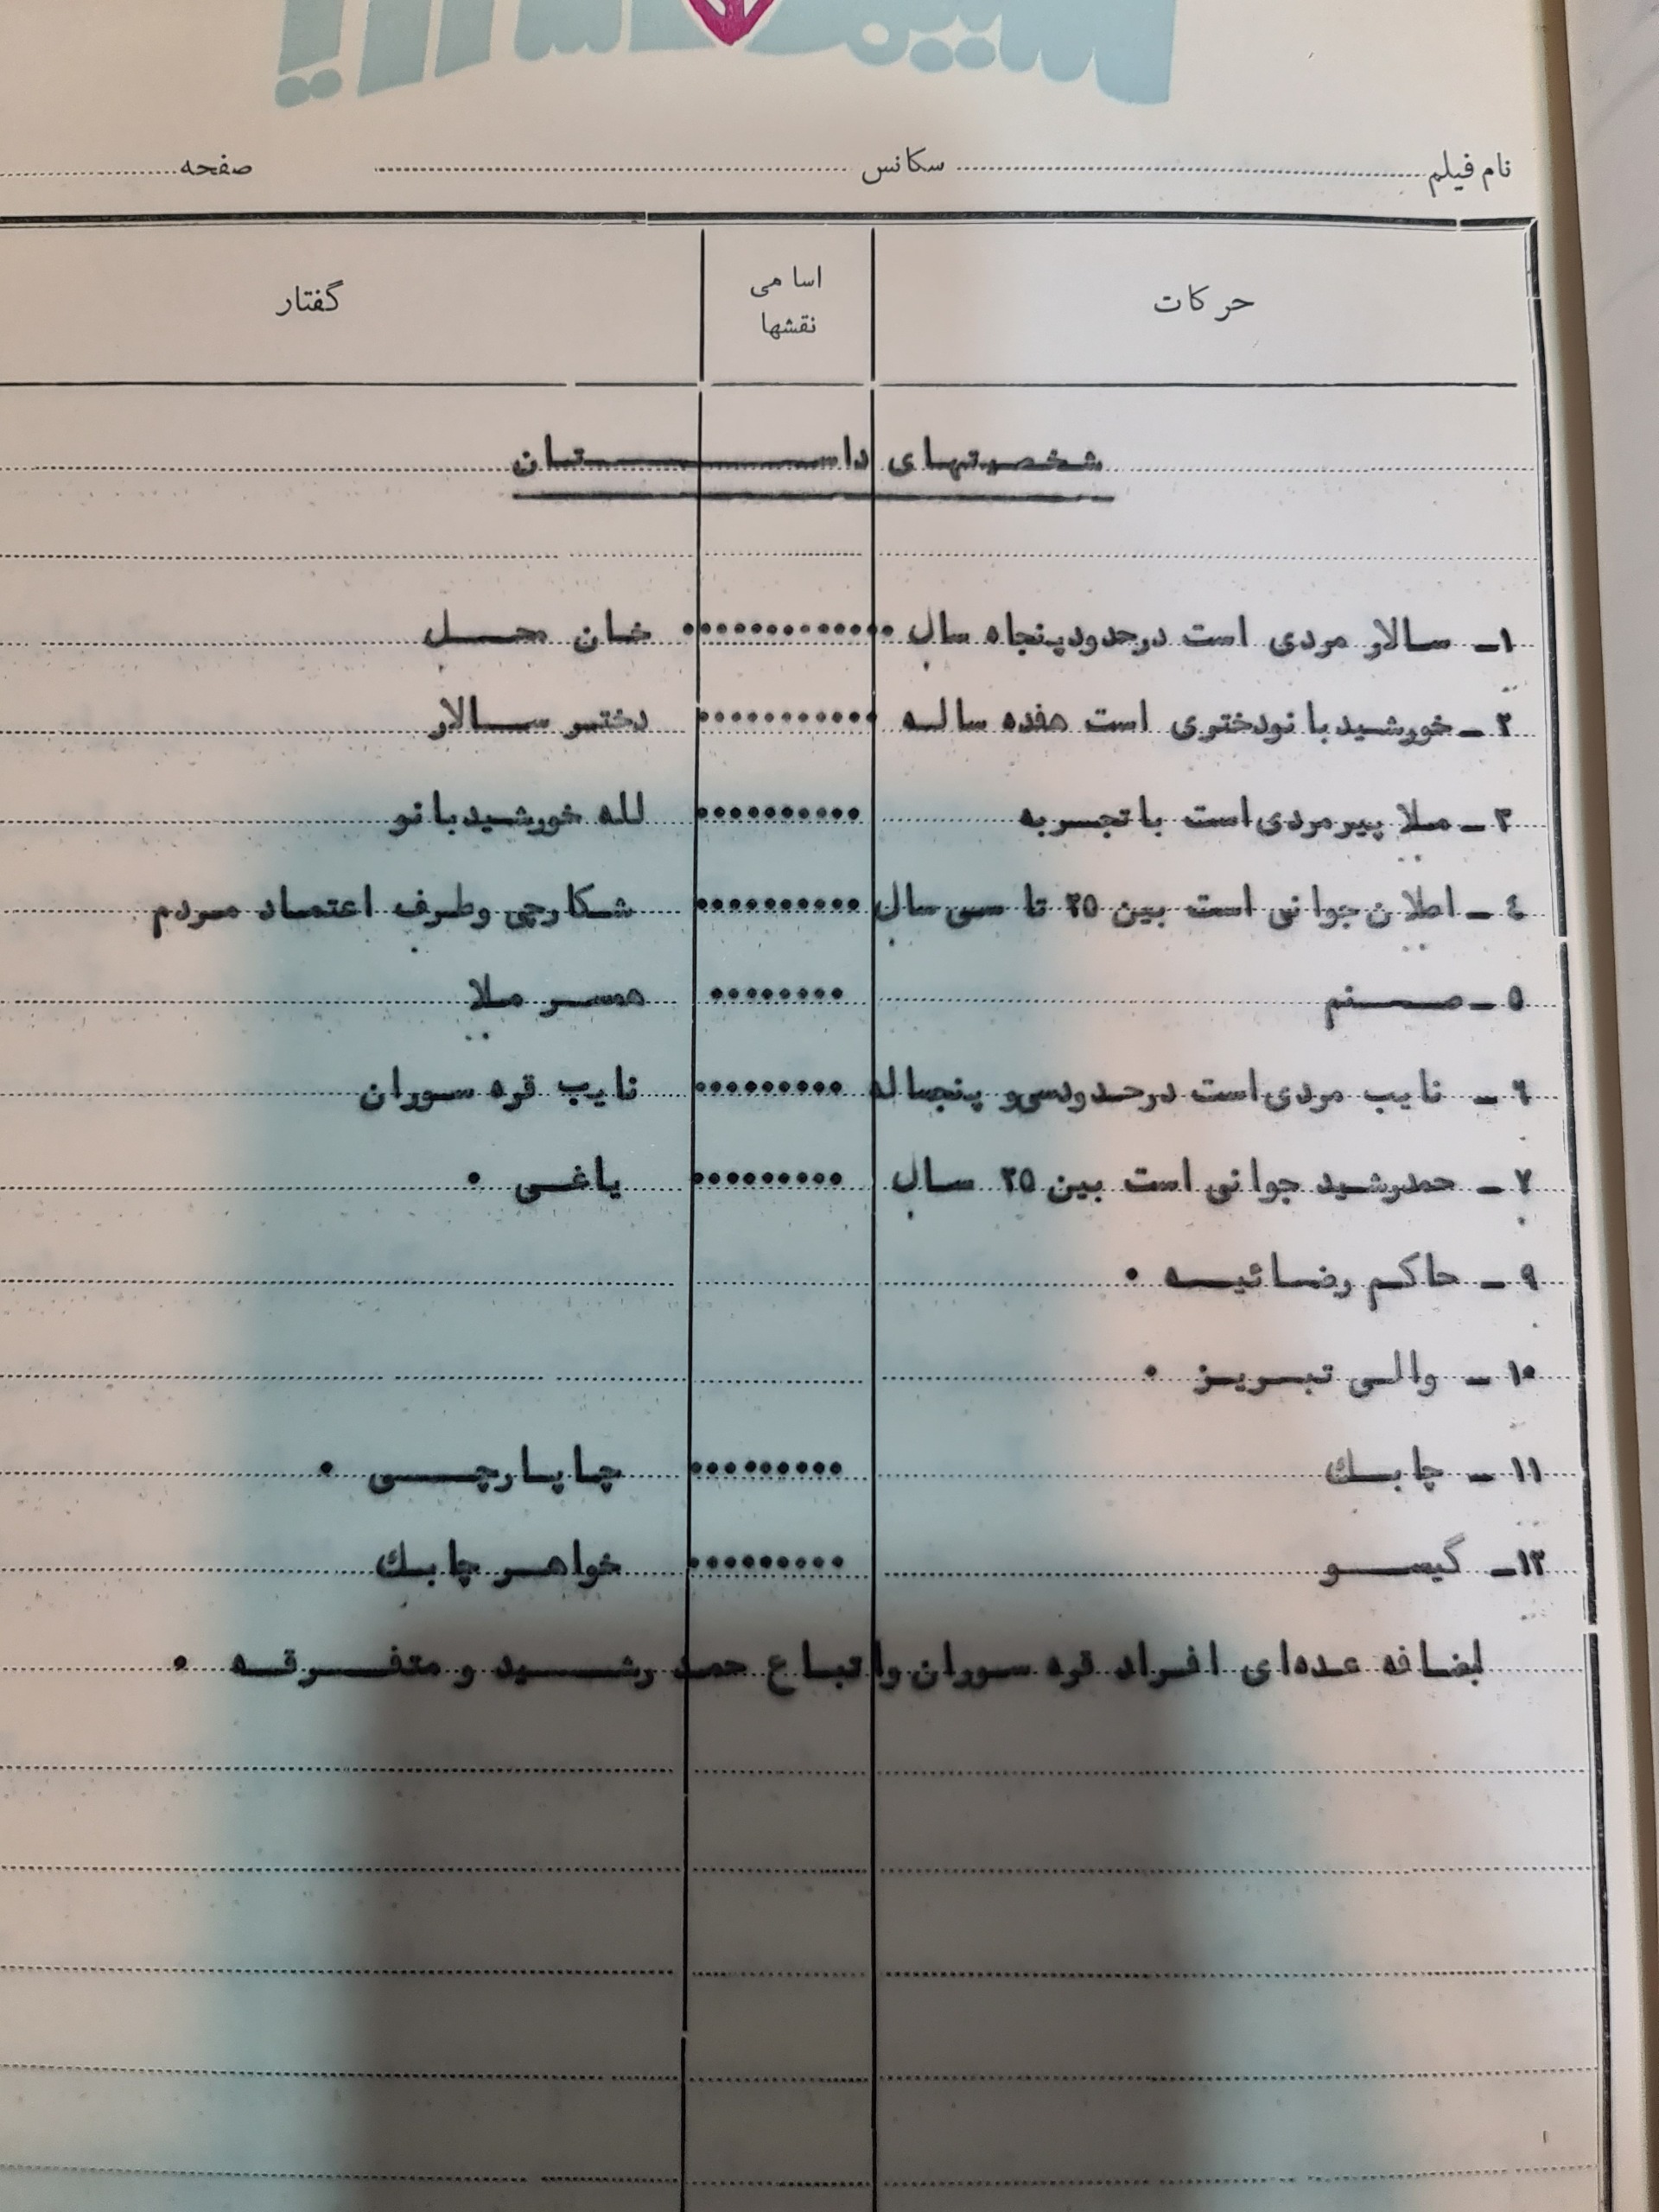 نام فیلم ........ سکانس ........ صفحه
حرکات اسامی نقشها گفتار
شخصیتهای داستان
۱ـ سالار مردی است درحدودپنجاه سال ............ خان محل
۲ـ خورشیدبانودختری است هفده ساله ........... دختر سالار
۳ـ ملا پیرمردی است باتجربه .......... لله خورشیدبانو
٤ـ اصلان جوانی است بین ۲۵ تا سی سال .......... شکارچی وطرف اعتماد مردم
۵ـ صنم ........ همسر ملا
٦ـ نایب مردی است درحدودسی‌و پنجساله ......... نایب قره سوران
۷ـ حمدرشید جوانی است بین ۲۵ سال ......... یاغی .
۹ـ حاکم رضائیه .
۱۰ـ والی تبریز .
۱۱ـ چابک ......... چاپارچی .
۱۲ـ گیسو ......... خواهر چابک
بضافه عده‌ای افراد قره سوران واتباع حمد رشید و متفرقه .